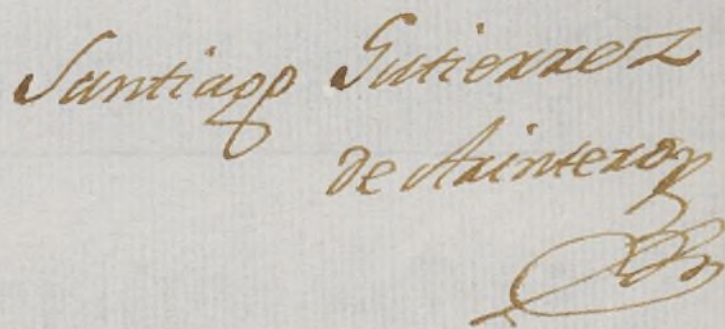 Santiago Gutierrez
de Arintero